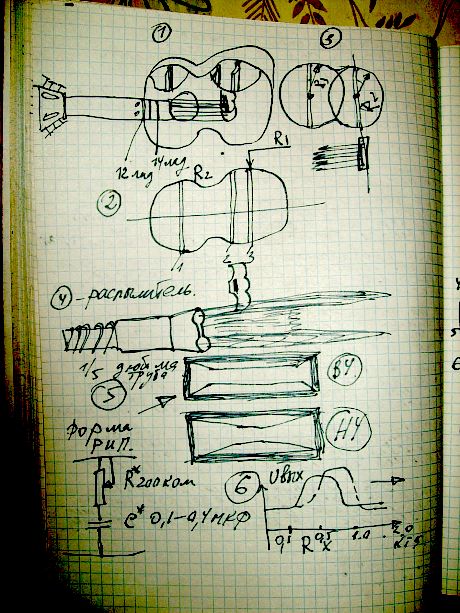 1
3
R1
R2
12 лад
14 лад
R2
R1
2
1
2
3
4 - распылитель.
1/5 дюйма
труба
5
ВЧ
НЧ
Форма
РИП.
R*
200 ком
C* 0,1-0,4 мкФ
6
Uвых
0,1
R
0,5
X
1.0
2.0